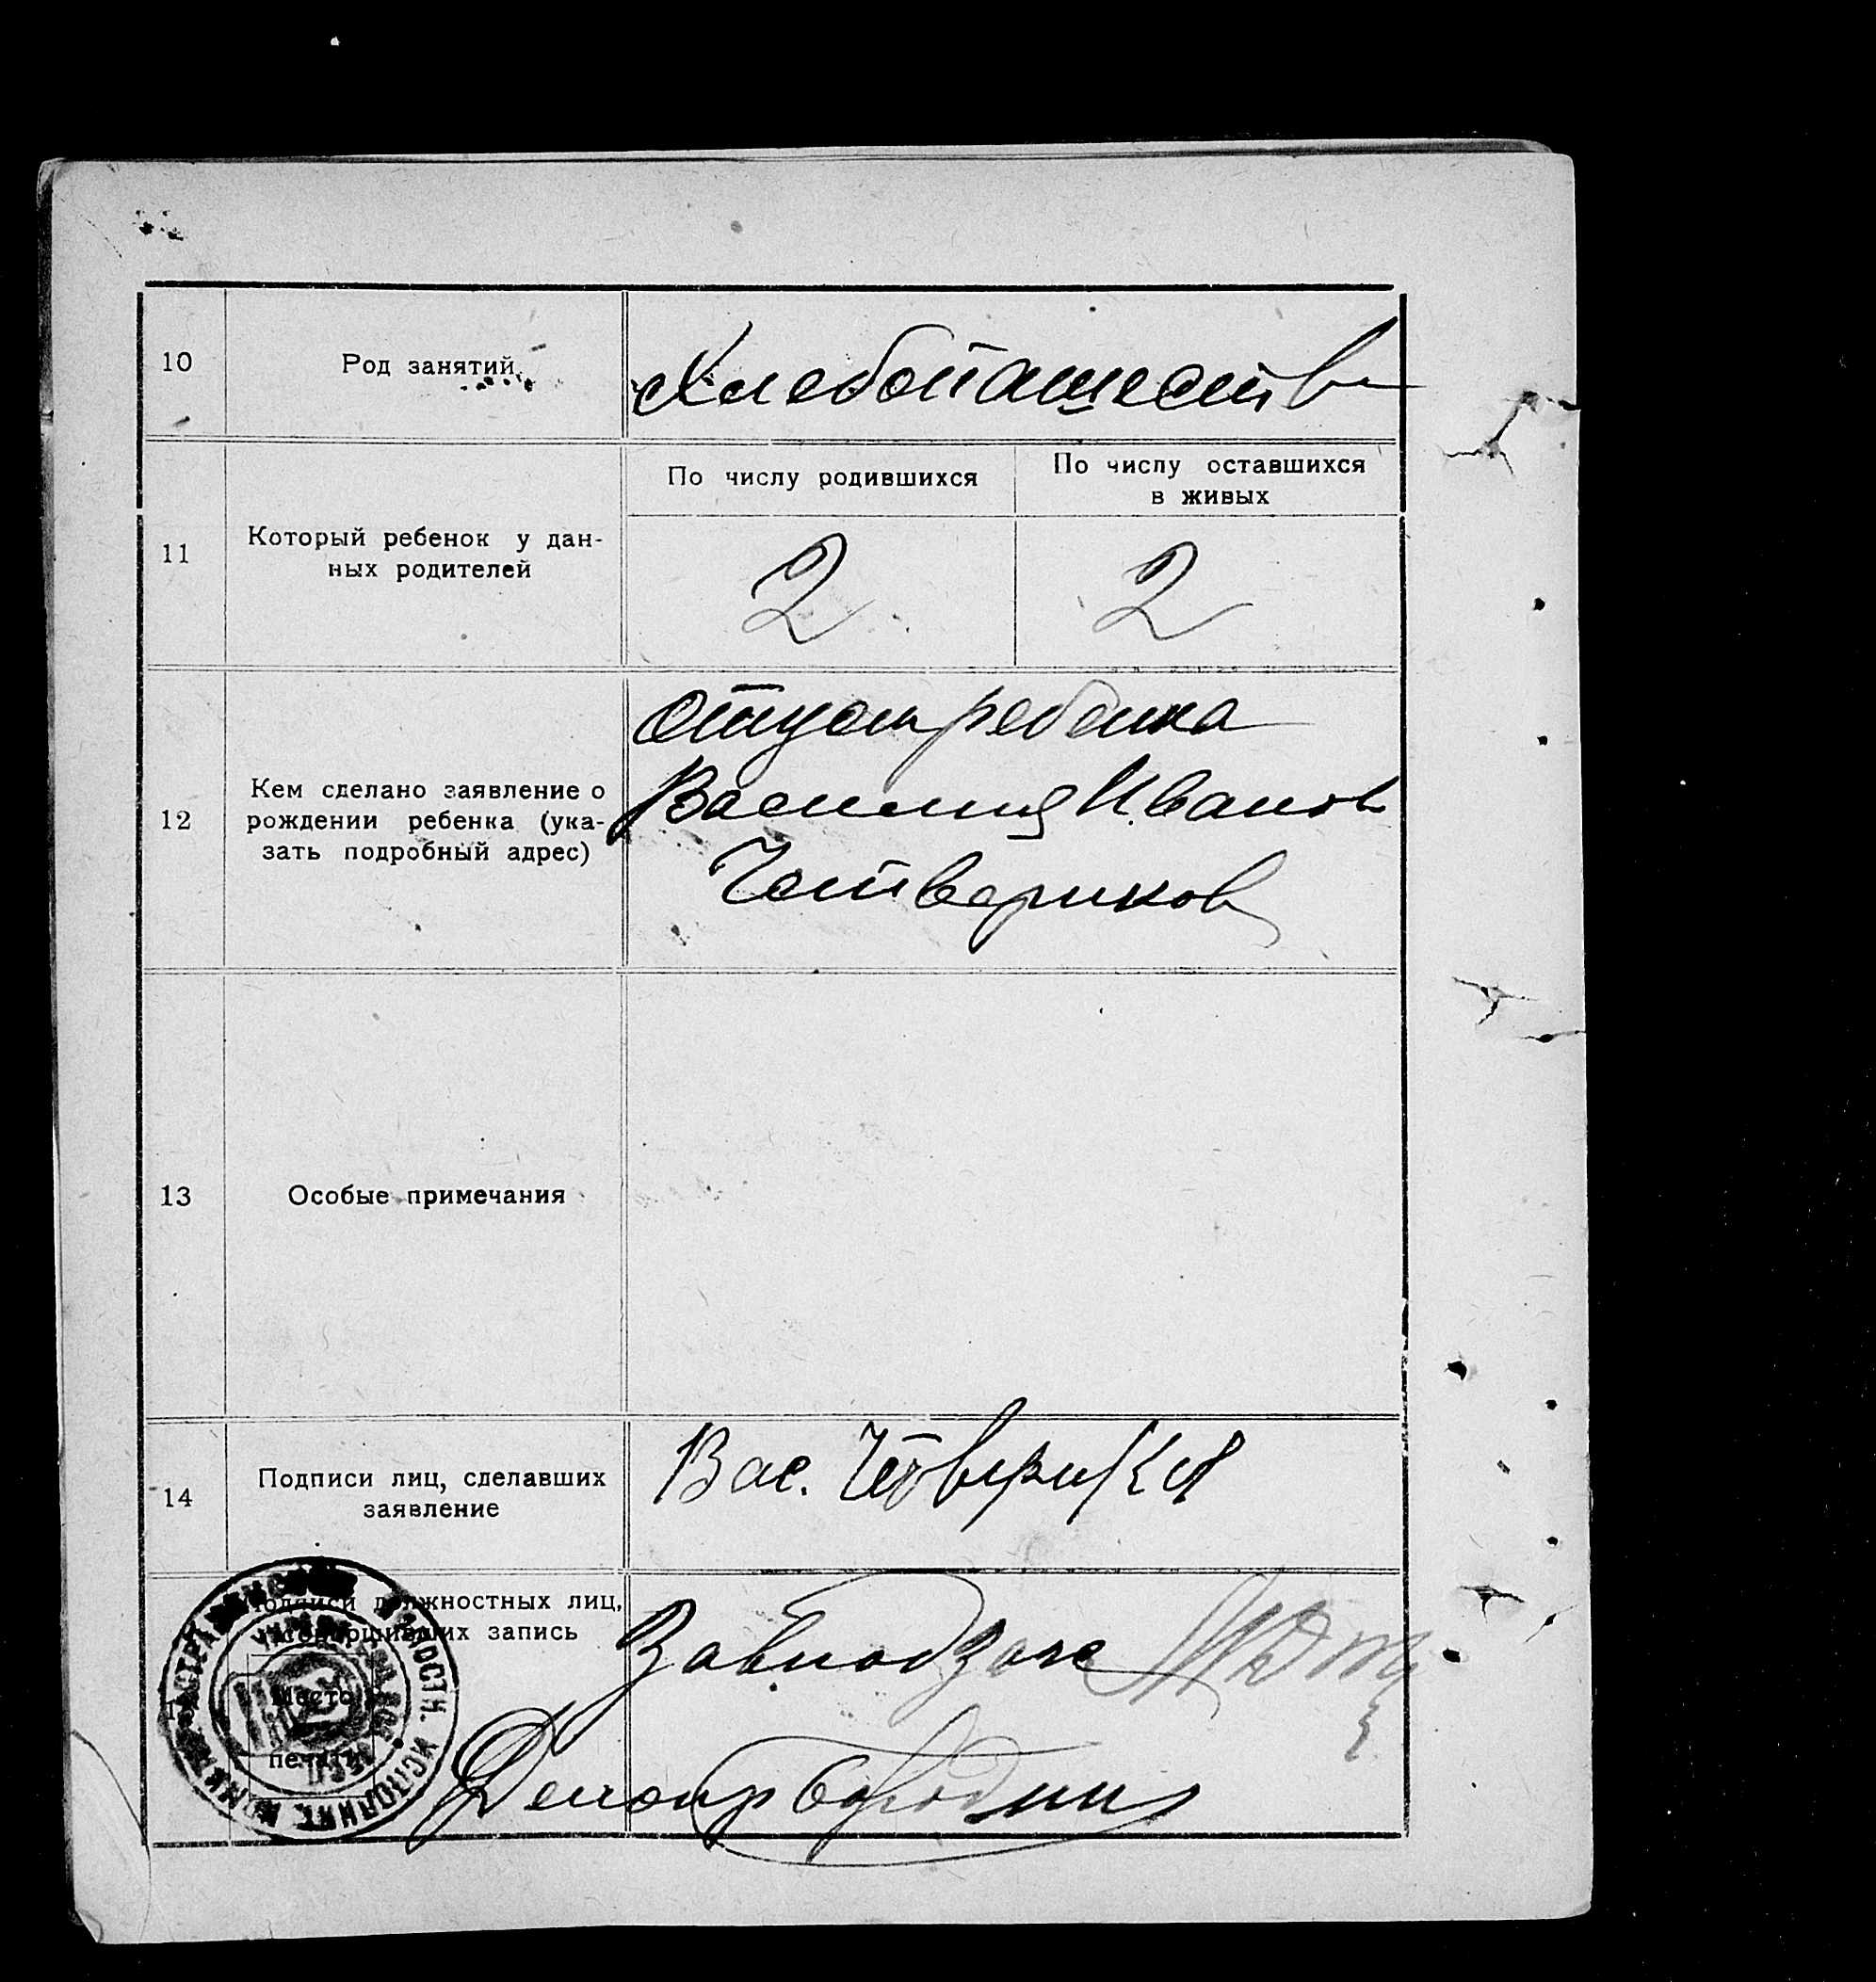 10
Род занятий
Хлебопашеств
11
Который ребенок у дан-
ных родителей
По числу родившихся
По числу оставшихся
в живых
2
2
12
Кем сделано заявление о
рождении ребенка (ука-
зать подробный адрес)
Отцом ребенка
Василия Иванов
Четвериков
13
Особые примечания
14
Подписи лиц, сделавших
заявление
Вас. Четверик
Подписи должностных лиц,
совершивших запись
Место
печати
Завподзагс
Делопр